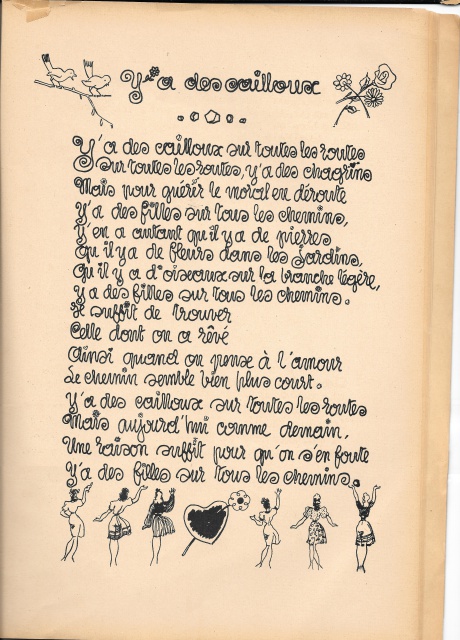 Y'a des cailloux
Y'a des cailloux sur toutes les routes
Sur toutes les routes, y'a des chagrins
Mais pour guérir le moral en déroute
Y'a des filles sur tous les chemins,
Y'en a autant qu'il y a de pierres
Qu'il y a de fleurs dans les jardins,
Qu'il y a d'oiseaux sur la branche légère,
Y a des filles sur tous les chemins.
Il suffit de trouver
Celle dont on a rêvé
Ainsi quand on pense à l'amour
Le chemin semble bien plus court.
Y'a des cailloux sur toutes les routes
Mais aujourd'hui comme demain,
Une raison suffit pour qu'on s'en foute
Y'a des filles sur tous les chemins.